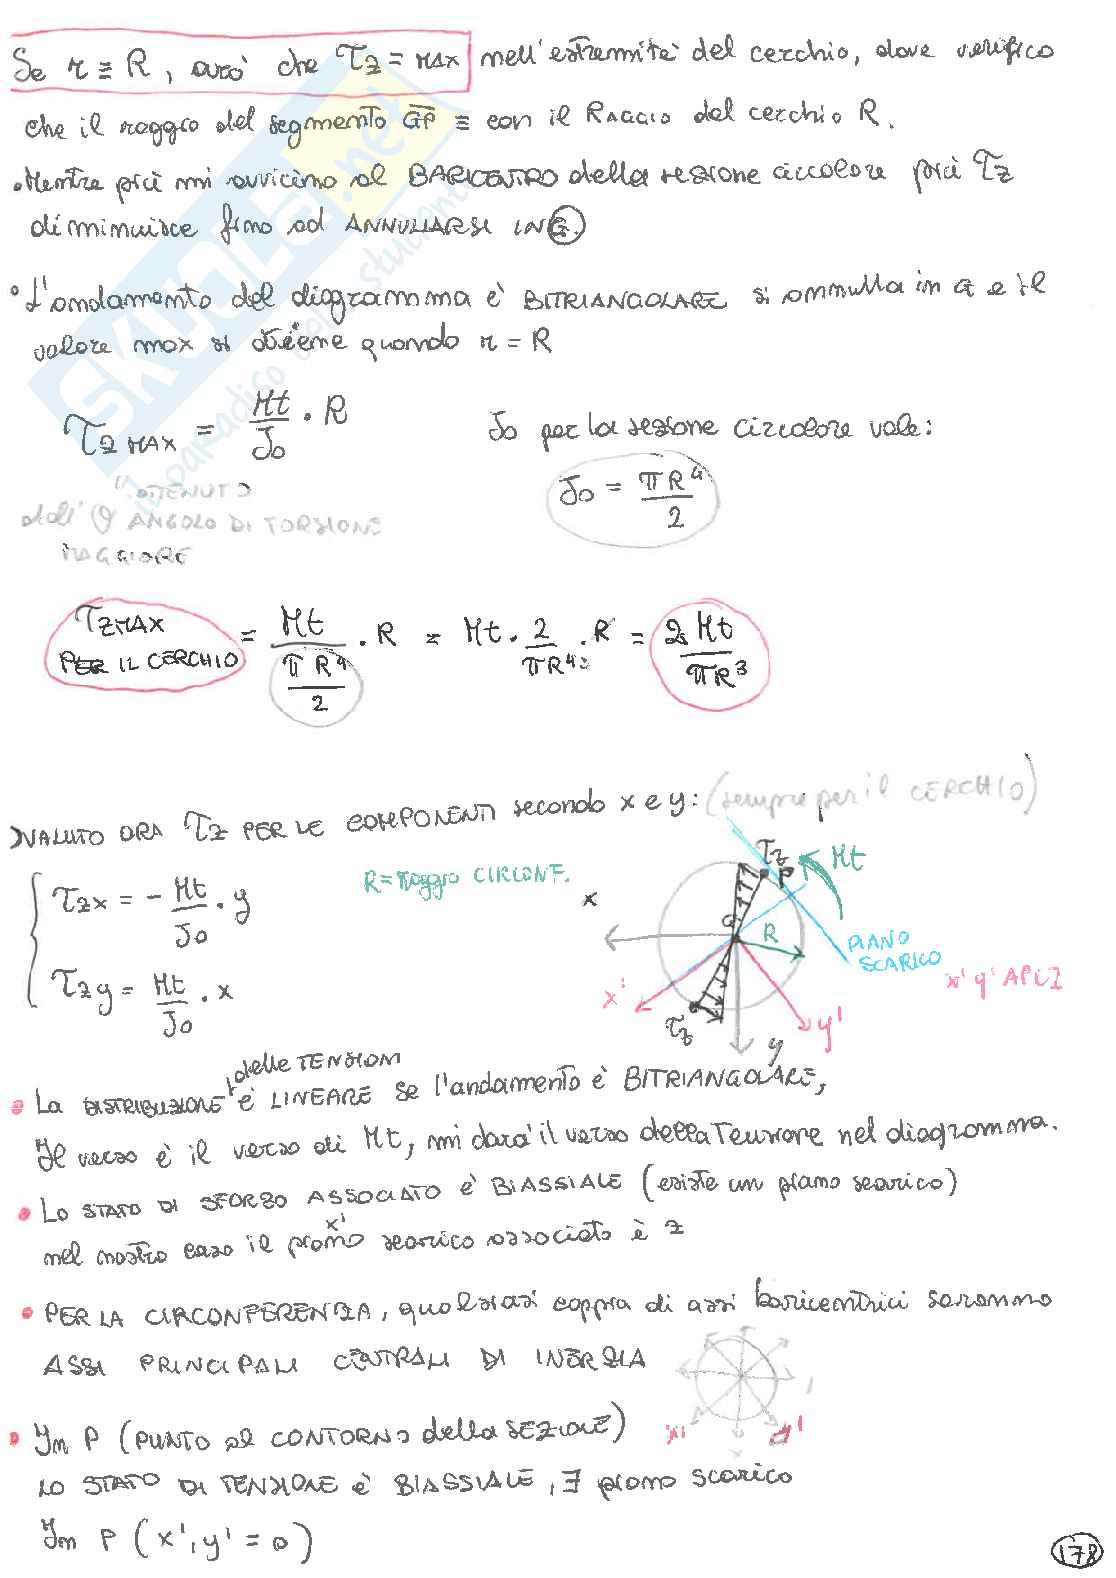 Se r ≡ R, avrò che τz = MAX nell'estremità del cerchio, dove verifico
che il raggio del segmento GP ≡ con il RAGGIO del cerchio R.
• Mentre più mi avvicino al BARICENTRO della sezione circolare più τz
diminuisce fino ad ANNULLARSI IN G.
• L'andamento del diagramma è BITRIANGOLARE si annulla in G e il
valore max si ottiene quando r = R
τz MAX = Mt/Jo · R
Jo per la sezione circolare vale:
Jo = πR⁴/2
OTTENUTO
dall' θ ANGOLO DI TORSIONE
MAGGIORE
τz MAX PER IL CERCHIO = Mt/(πR⁴/2) · R = Mt · 2/πR⁴ · R = 2Mt/πR³
VALUTO ORA τz PER LE COMPONENTI secondo x e y: (sempre per il CERCHIO)
τzx = - Mt/Jo · y
τzy = Mt/Jo · x
R = raggio CIRCONF.
x
τz
P
Mt
G
R
PIANO
SCARICO
x' y' APCI
x'
τz
y
y'
• La DISTRIBUZIONE delle TENSIONI è LINEARE se l'andamento è BITRIANGOLARE,
Il verso è il verso di Mt, mi darà il verso della Tensione nel diagramma.
• Lo STATO DI SFORZO ASSOCIATO è BIASSIALE (esiste un piano scarico)
nel nostro caso il piano x' scarico associato è z
• PER LA CIRCONFERENZA, qualsiasi coppia di assi baricentrici saranno
ASSI PRINCIPALI CENTRALI DI INERZIA
x'
y'
• In P (PUNTO al CONTORNO della SEZIONE)
LO STATO DI TENSIONE è BIASSIALE, ∃ piano scarico
In P (x', y' = 0)
178
SKUOLA.net
il paradiso dello studente